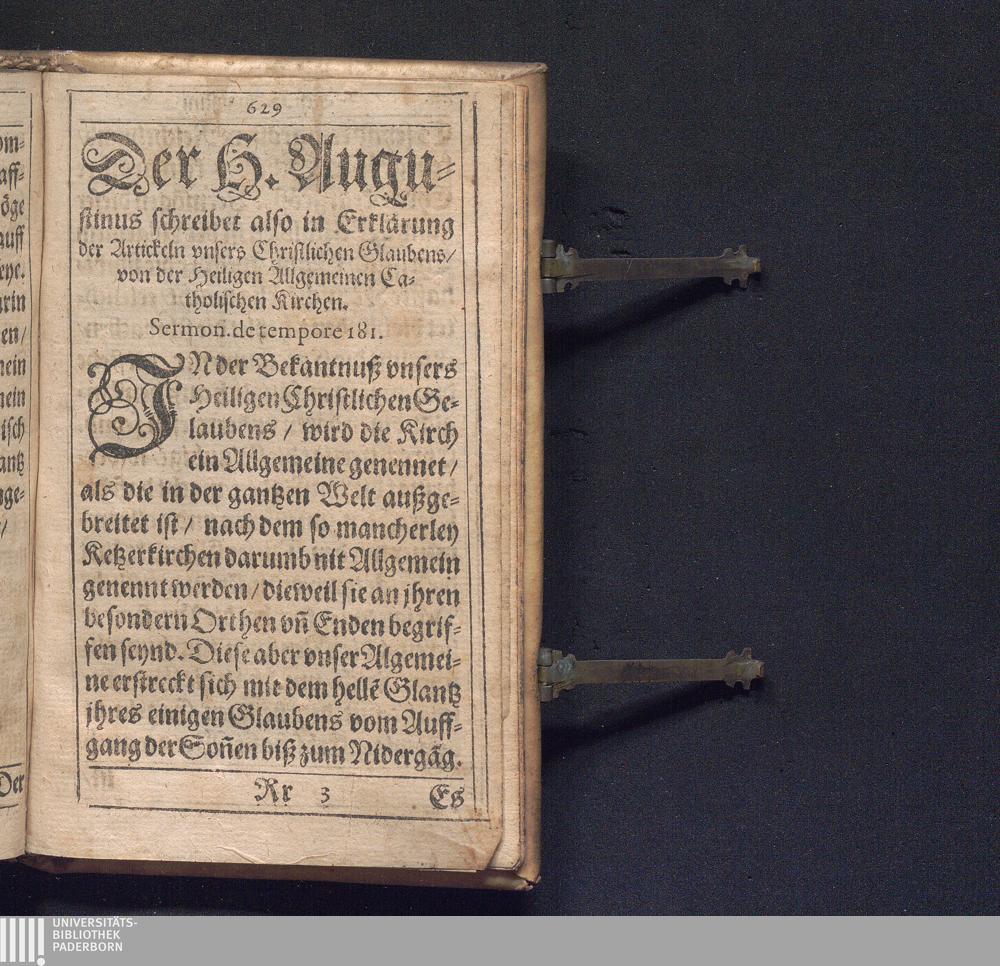 om-
aff-
öge
auff
eye.
rin
en/
nein
nein
isch
antz
nge-
/
Der
629
Der H. Augu-
stinus schreibet also in Erklärung
der Artickeln vnsers Christlichen Glaubens/
von der Heiligen Allgemeinen Ca-
tholischen Kirchen.
Sermon. de tempore 181.
IN der Bekantnuß vnsers
Heiligen Christlichen Ge-
laubens / wird die Kirch
ein Allgemeine genennet /
als die in der gantzen Welt außge-
breitet ist / nach dem so mancherley
Ketzerkirchen darumb nit Allgemein
genennt werden / dieweil sie an jhren
besondern Orthen vñ Enden begrif-
fen seynd. Diese aber vnser Algemei-
ne erstreckt sich mit dem hellẽ Glantz
jhres einigen Glaubens vom Auff-
gang der Soñen biß zum Nidergãg.
Rr 3
Es
UNIVERSITÄTS-
BIBLIOTHEK
PADERBORN